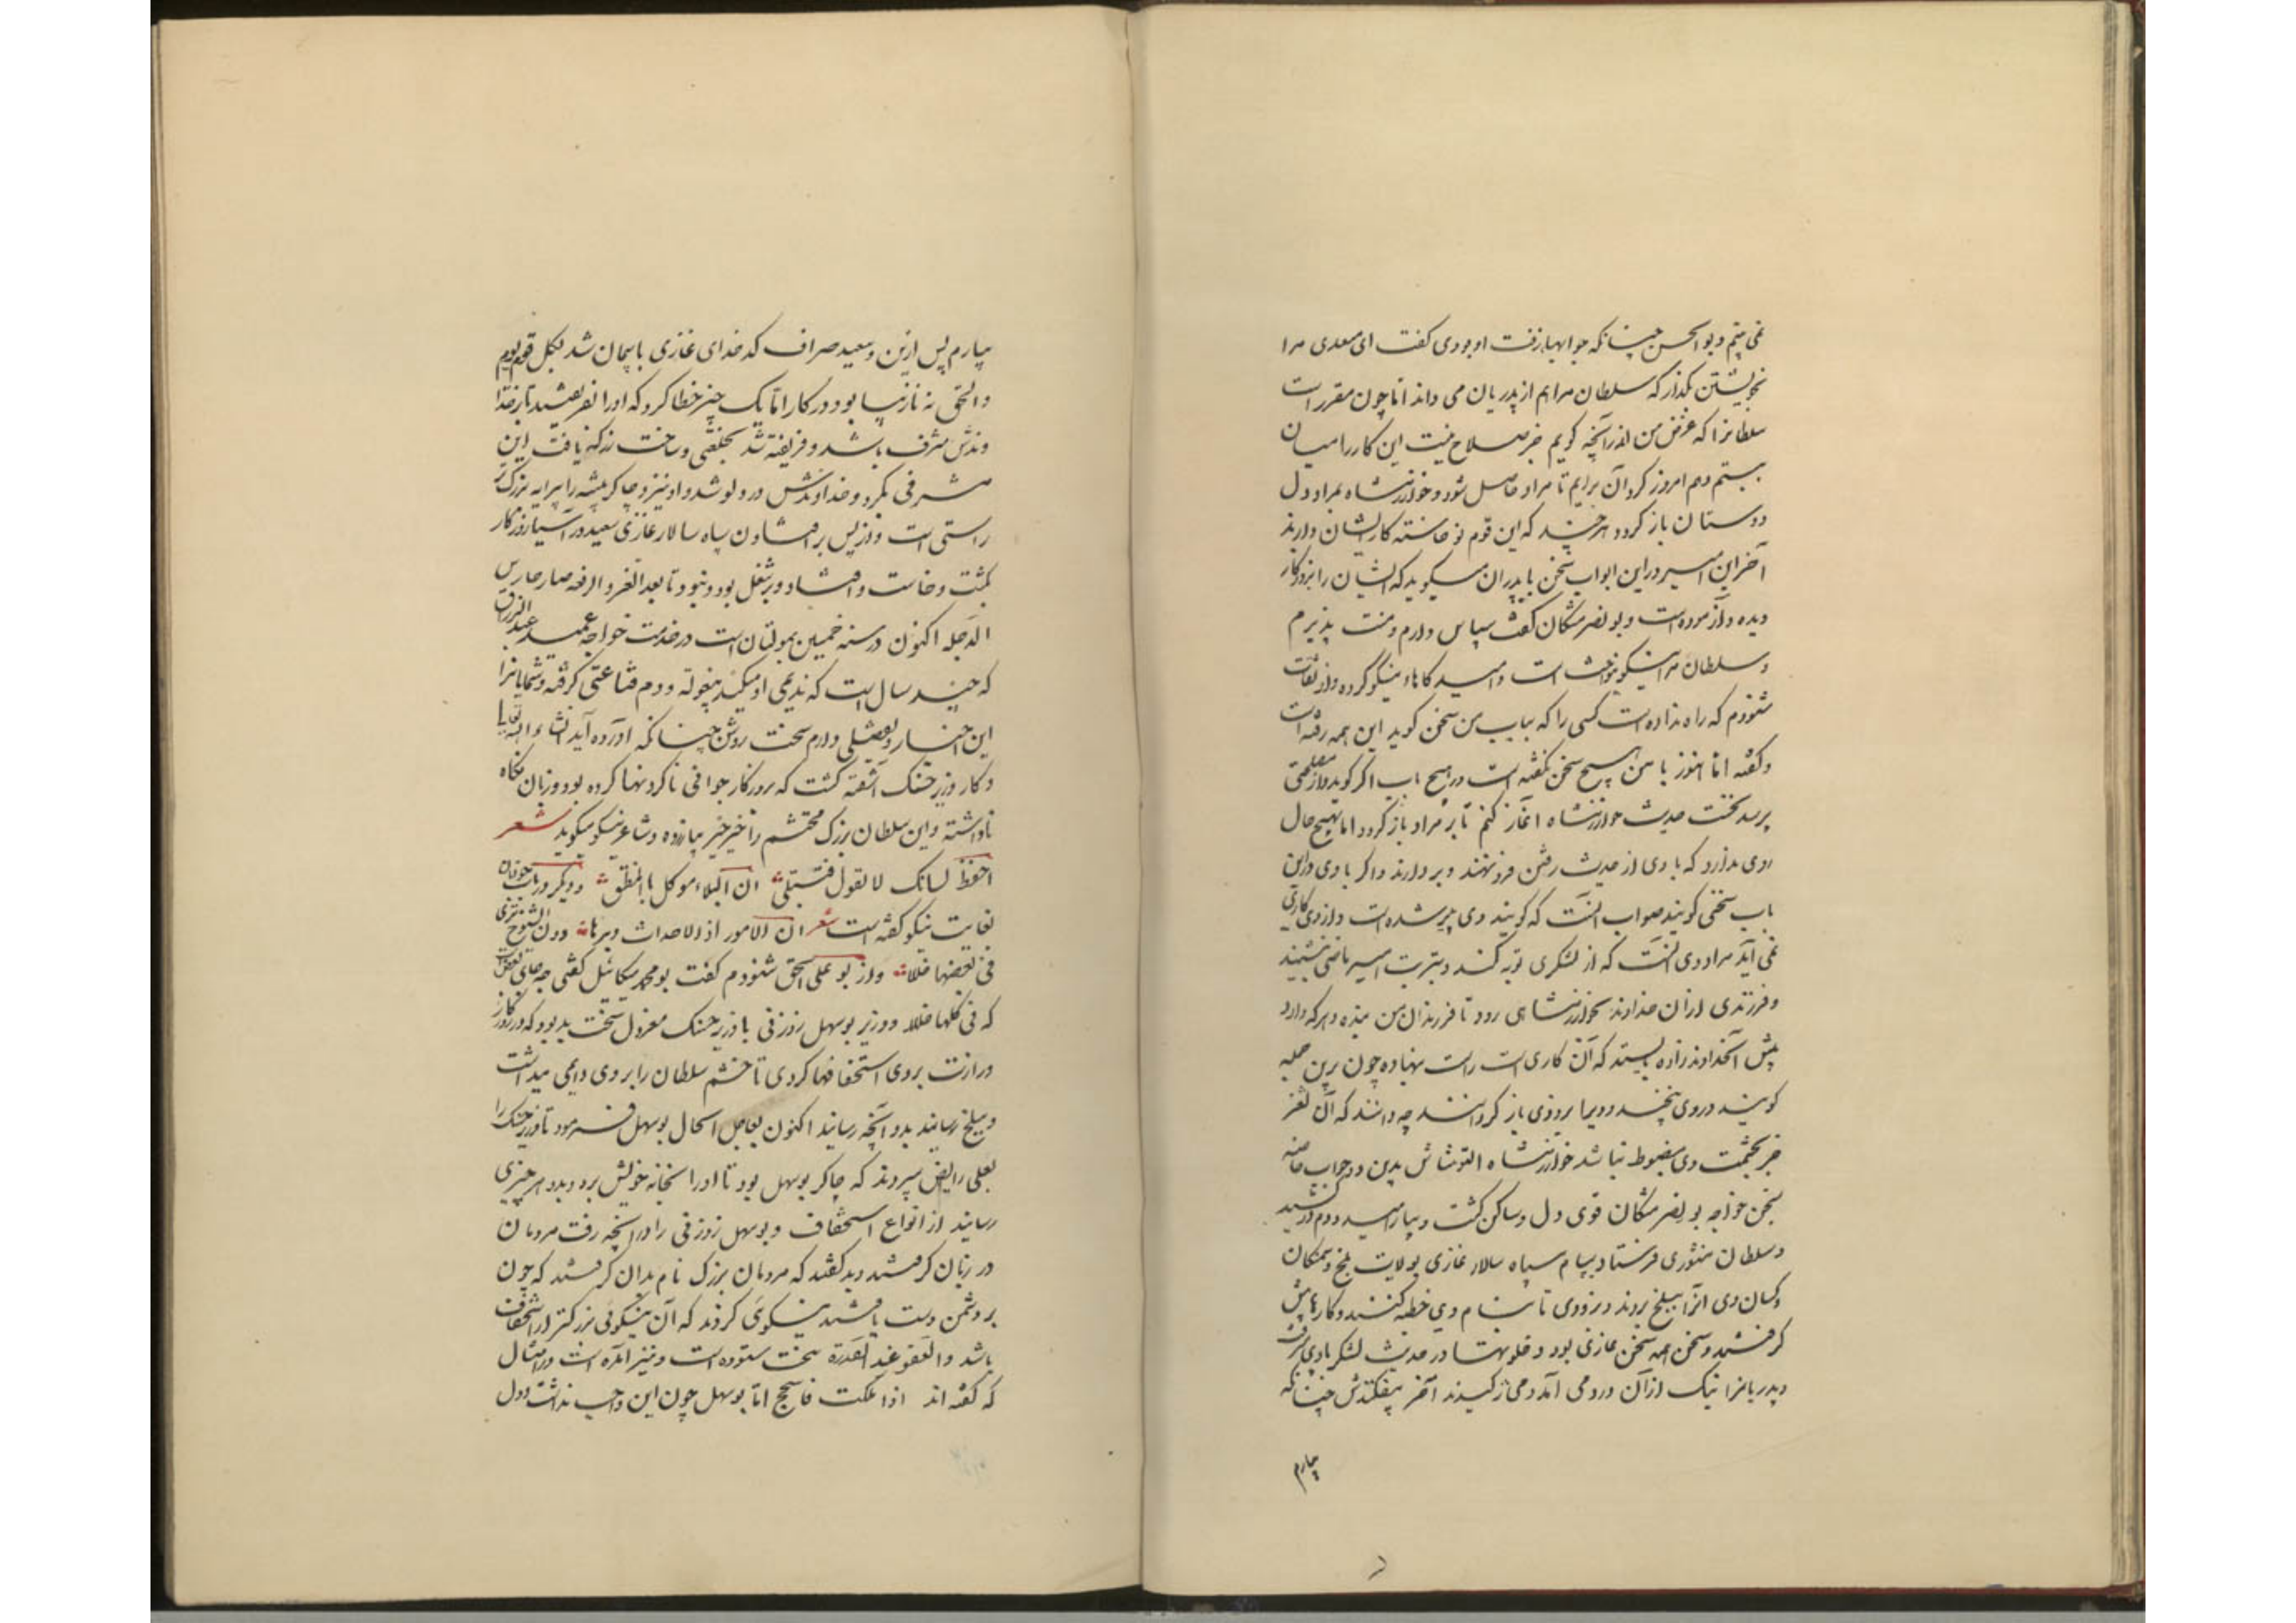 نمی بینم و بوالحسن چنانکه جوابها زفت او بودی گفت ای معدی مرا
بخویشتن بگذار که سلطان مرا هم از پدریان می داند اما چون مقرر است
سلطانرا که غرض من اندر آنچه گویم خبر صلاح نیست این کار را میان
ببستم و هم امروز گرد آن برایم تا مراد حاصل شود و خوارزمشاه بمراد دل
دوستان باز گردد هر چند که این قوم نو خاسته کار ایشان دارند
آخر این امیر در این ابواب سخن با پدران میگوید که ایشان را بروزگار
دیده و آزموده است و بونصر مشکان گفت سپاس دارم و منت پذیرم
و سلطان مرا نیکو بنواخت است و امید کاهاء نیکو کرده و از ثقات
شنودم که راه نداده است کسی را که بباب من سخن گوید این همه رفته است
و گفته اما هنوز با من هیچ سخن نگفته است در هیچ باب اگر گوید و از مصلحتی
پرسد نخست حدیث خوارزمشاه آغاز کنم تا بر مراد باز گردد اما بهیچ حال
روی ندارد که با وی از حدیث رفتن فرو نهند و بر دارند و اگر با وی در این
باب سخنی گویند صواب آنست که گویند وی پیر شده است و از وی کاری
نمی آید مراد وی آنست که از لشکری توبه کند و بتربت امیر ماضی بنشیند
و فرزندی از آن خداوند بخوارزمشاهی رود تا فرزندان من بنده و هر که دارد
پیش آنخداوند زاده بایستد که آن کاری است راست نهاده چون برین جمله
گویند در وی نپیچند و دیبا بروذی باز گردانند چه دانند که آن ثغر
خبر بحشمت وی مضبوط نباشد خوارزمشاه التونتاش بدین دو جواب خاصه
بسخن خواجه بونصر مشکان قوی دل و ساکن گشت و بیارامید و دم در کشید
و سلطان منثوری فرستاد بپیام سپاه سالار غازی بولایت بلخ و سمنگان
و کسان وی آنرا ببلخ بردند و بزودی تا بنام وی خطبه کنند و کارها پیش
گرفتند و سخن همه سخن غازی بود و خلوتها در حدیث لشکر با وی میرفت
و پدریانرا نیک از آن درد می آمد و می ژکیدند آخر بیفکندش چنانکه
بیارم
بیارم پس ازین و سعید صراف کدخدای غازی باسمان شد لیکل قوم یوم
والحق نه نازیبا بود در کار اما یک چیز خطا کرد که او را نفریفتند تا بر خدا
وندش مشرف باشد و فریفته شد بخلعتی و ساخت زر که یافت این
مشرفی بکرد و خداوندش در ولو شد و او نیز و چاکر پیشه را پیرایه بزرگتر
راستی است و از پس بر افتادن سپاه سالار غازی سعید در آسیا روزگار
بگشت و خاست و افتاد و بر شغل بود و نبود تا بعد العز و الرفعه صار حارس
الدجله اکنون در سنه خمسین بمولتان است در خدمت خواجه عمید عبدالرزاق
که چند سال است که ندیمی او میکند بیغوله و دم قناعتی گرفته و شمایانرا
این اخبار و تفصیلی دارم سخت روشن چنانکه آورده آید انشاء الله تعالی
و کار وزیر حسنک آشفته گشت که بروزگار جوانی ناکردنیها کرده بود و زبان نگاه
ناداشته و این سلطان بزرگ محتشم را خیر خیر بیازرده و شاعر نیکو میگوید شعر
احفظ لسانک لا تقول فتبتلی ان البلاء موکل بالمنطق و دیگر در باب جوانان
بغایت نیکو گفته است شعر ان الامور اذ الاحداث دبرها دون الشیوخ تری
فی بعضها خللا و از بو علی اسحق شنودم گفت بو محمد میکائیل گفتی چه جای بعض است
که فی کلها خللا و وزیر بوسهل زوزنی با وزیر حسنک معزول سخت بد بود که در روزگار
وزارت بر وی استخفافها کردی تا خشم سلطان را بر وی دایمی میداشت
و ببلخ رسانید بدو آنچه رسانید اکنون بعاجل الحال بوسهل فرمود تا وزیر حسنک را
بعلی رایض سپردند که چاکر بوسهل بود تا او را بخانه خویش برد و بدو هر چیزی
رسانید از انواع استخفاف و بوسهل زوزنی را در آنچه رفت مردمان
در زبان گرفتند و بد گفتند که مردمان بزرگ نام بدان گرفتند که چون
بر دشمن دست یافتند نیکوئی کردند که آن نیکوئی بزرگتر از استخفاف
باشد و العفو عند القدرة سخت ستوده است و نیز آمده است در امثال
که گفته اند اذا ملکت فاسجح اما بوسهل چون این واجب نداشت و دل